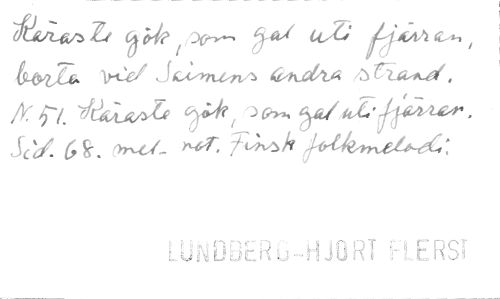 Käraste gök, som gal uti fjärran,
borta vid Saimens andra strand.
N. 51. Käraste gök, som gal uti fjärran.
Sid. 68. mel- not. Finsk folkmelodi.
LUNDBERG-HJORT FLERST